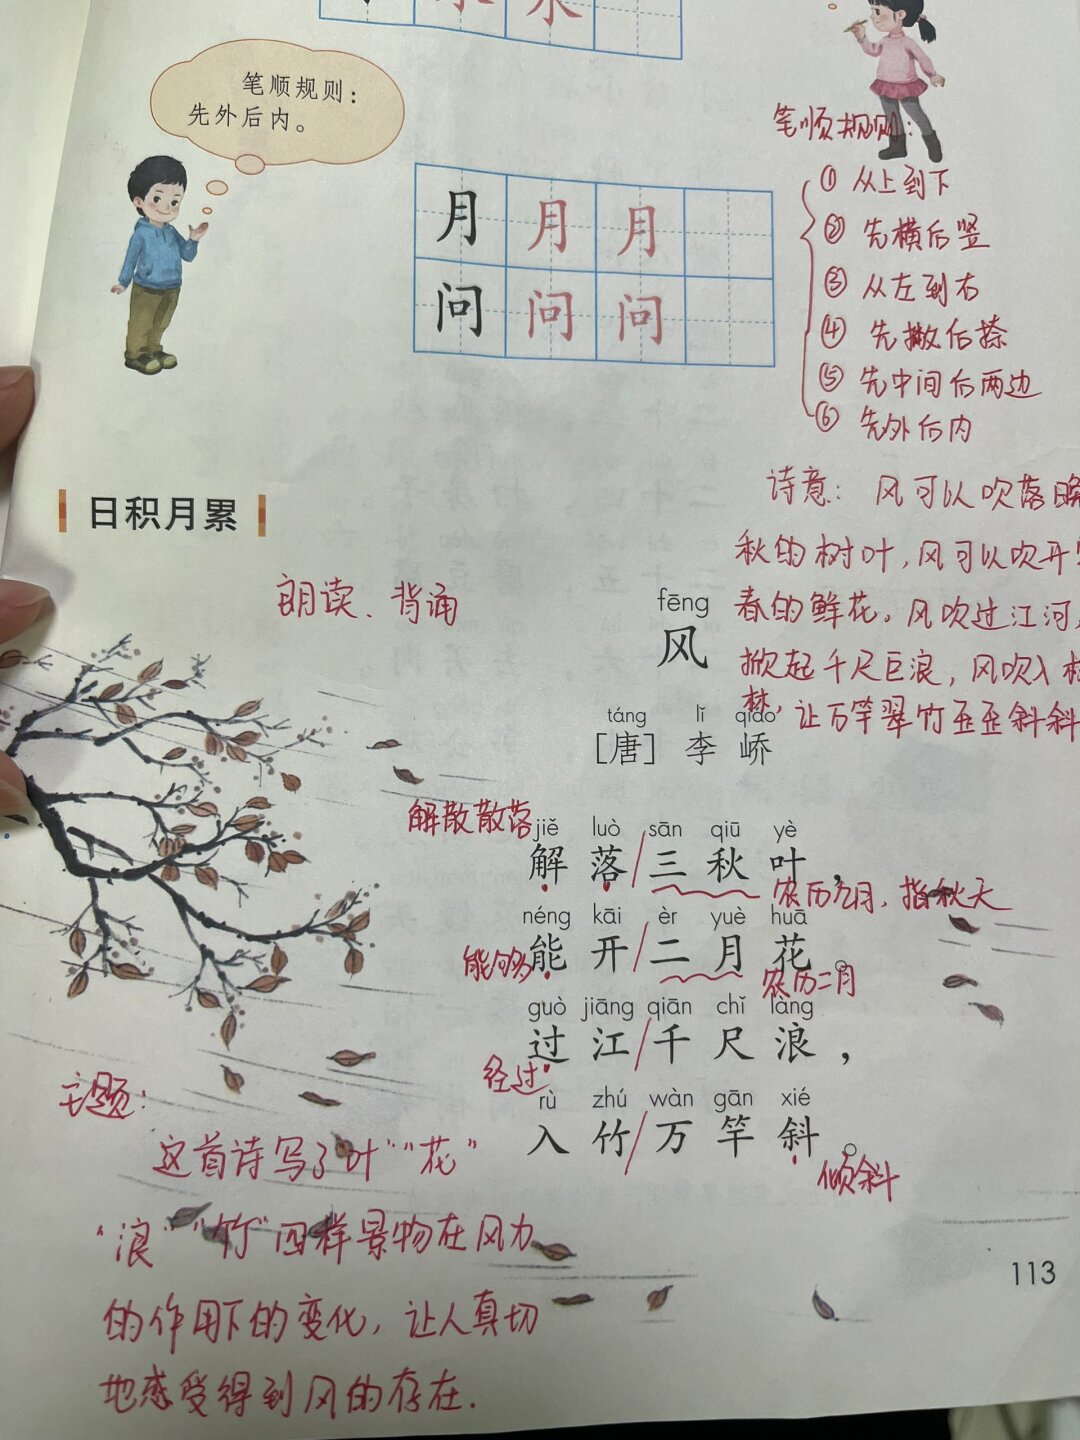 笔顺规则：
先外后内。
笔顺规则：
① 从上到下
② 先横后竖
③ 从左到右
④ 先撇后捺
⑤ 先中间后两边
⑥ 先外后内
月 月 月
问 问 问
日积月累
朗读、背诵
诗意：风可以吹落晚
秋的树叶，风可以吹开
春的鲜花。风吹过江河，
掀起千尺巨浪，风吹入
林，让万竿翠竹歪歪斜斜
fēng
风
táng lǐ qiáo
[唐] 李峤
解散散落
jiě luò sān qiū yè
解落/三秋叶，
农历九月，指秋天
néng kāi èr yuè huā
能够
能开/二月花。
农历二月
guò jiāng qiān chǐ làng
过江/千尺浪，
经过
rù zhú wàn gān xié
入竹/万竿斜。
倾斜
主题：
这首诗写了叶”“花”
“浪”“竹”四样景物在风力
的作用下的变化，让人真切
地感受得到风的存在.
113